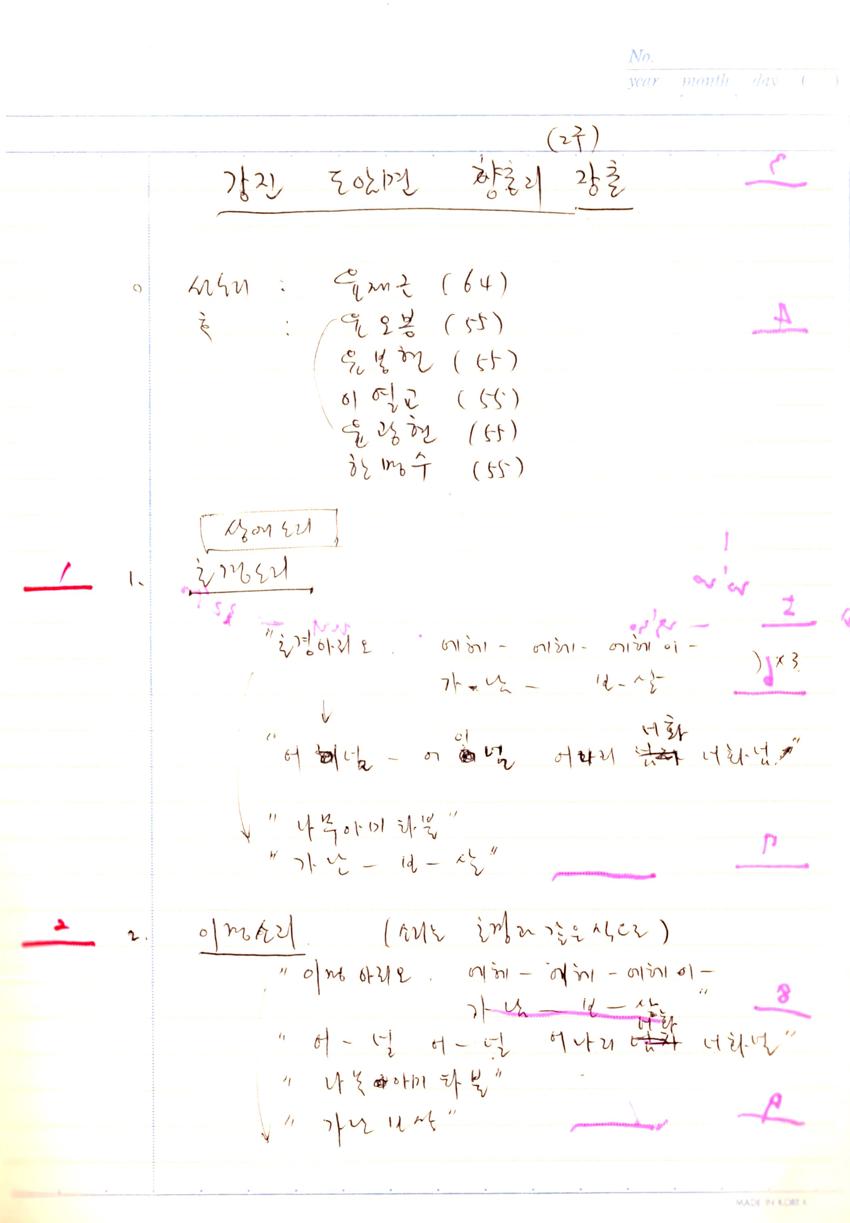 No.
year month day ( )
(2구)
강진 도암면 향촌리 장촌
o 선소리 : 윤재근 (64)
후 : 윤오봉 (55)
윤봉현 (55)
이열교 (55)
윤광현 (55)
한명수 (55)
상여소리
1 1. 초경소리
"초경아리오. 에헤- 에헤- 에헤이-
)×3
가-난- 보-살
너화
"어 넘- 어 이 넘 어나리 너화넘"
"나무아미타불"
"가난- 보-살"
2 2. 이경소리 (소리는 초경과 같은 식으로)
"이경아리오. 에헤- 에헤- 에헤이-
가난- 보-살"
너화
"어-널 어-널 어나리 너화널"
"나무아미타불"
"가난보살"
MADE IN KOREA